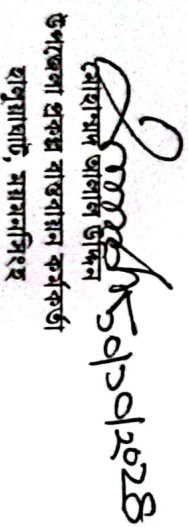 ১০/১০/২০২৪
মোহাম্মদ আলাল উদ্দিন
উপজেলা প্রকল্প বাস্তবায়ন কর্মকর্তা
হালুয়াঘাট, ময়মনসিংহ